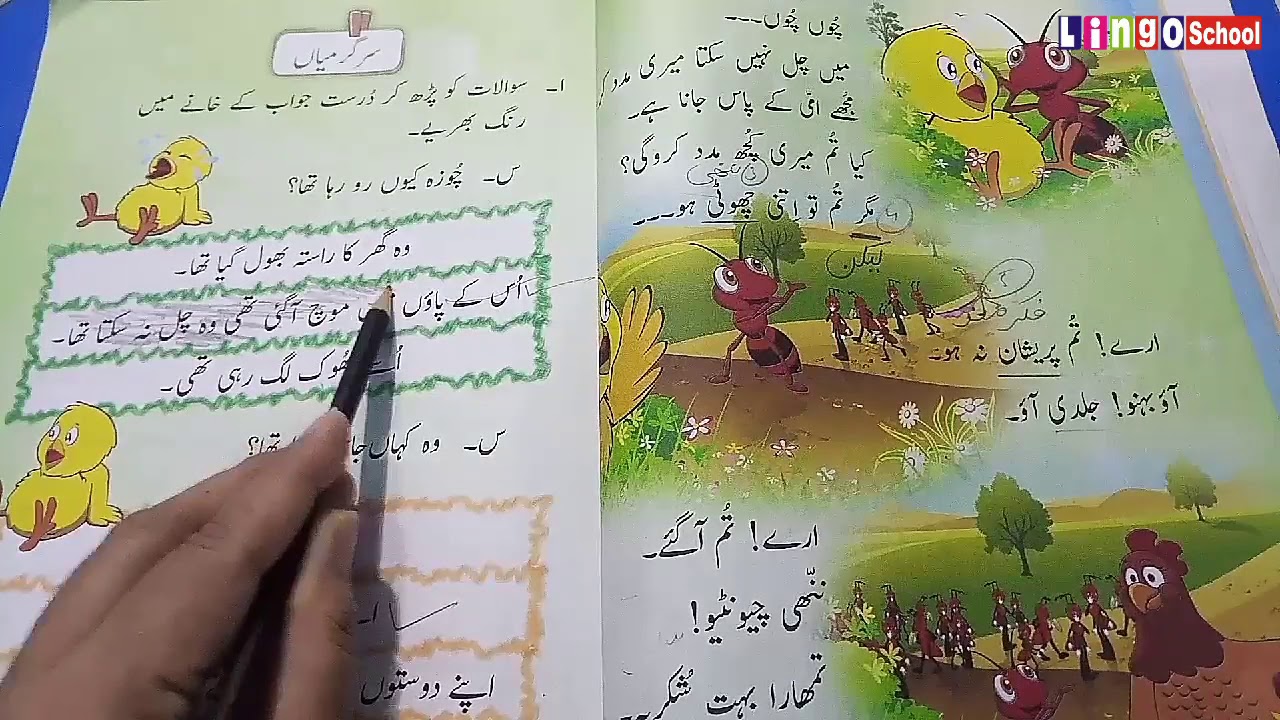 سرگرمیاں
۱۔ سوالات کو پڑھ کر دُرست جواب کے خانے میں
رنگ بھریے۔
س۔ چُوزہ کیوں رو رہا تھا؟
وہ گھر کا راستہ بھول گیا تھا۔
اُس کے پاؤں موچ آ گئی تھی وہ چل نہ سکتا تھا۔
بھُوک لگ رہی تھی۔
س۔ وہ کہاں تھا؟
اپنے دوستوں
چُوں چُوں۔۔۔
میں چل نہیں سکتا میری مدد
مُجھے امّی کے پاس جانا ہے۔
کیا تُم میری کُچھ مدد کروگی؟
مگر تُم تو اتنی چھوٹی ہو۔۔۔
لیکن
ارے! تُم پریشان نہ ہو۔
آؤ بہنو! جلدی آؤ۔
ارے! تُم آگئے۔
ننّھی چیونٹیو!
تمھارا بہت شُکریہ۔
LingoSchool